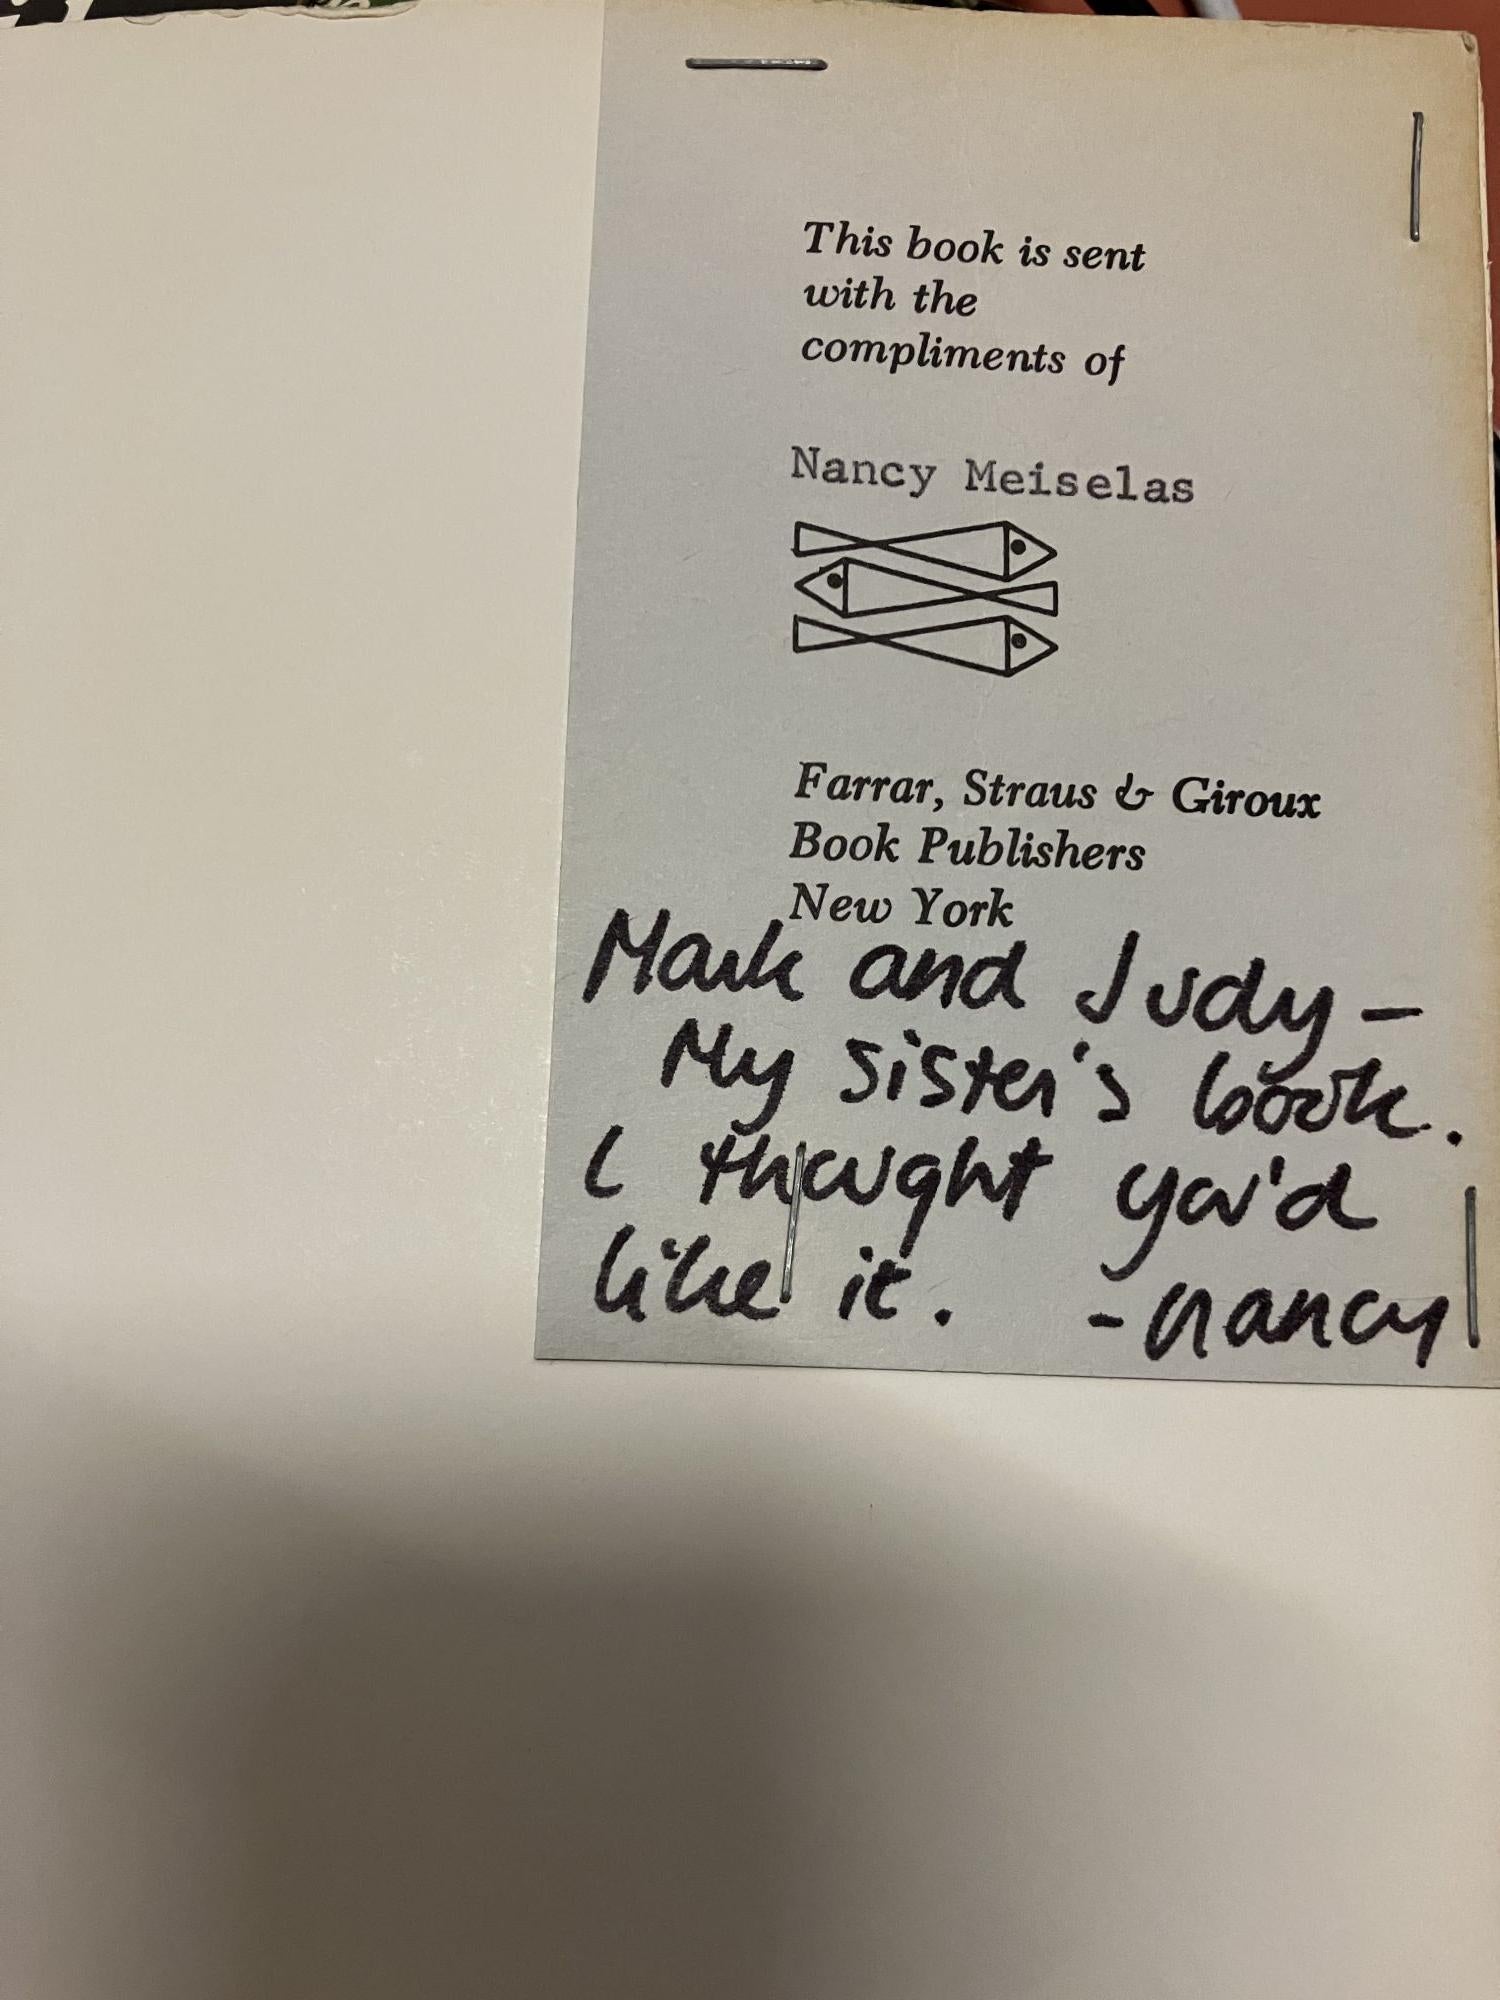 This book is sent
with the
compliments of
Nancy Meiselas
Farrar, Straus & Giroux
Book Publishers
New York
Mark and Judy –
My sister's book.
I thought you'd
like it. - Nancy